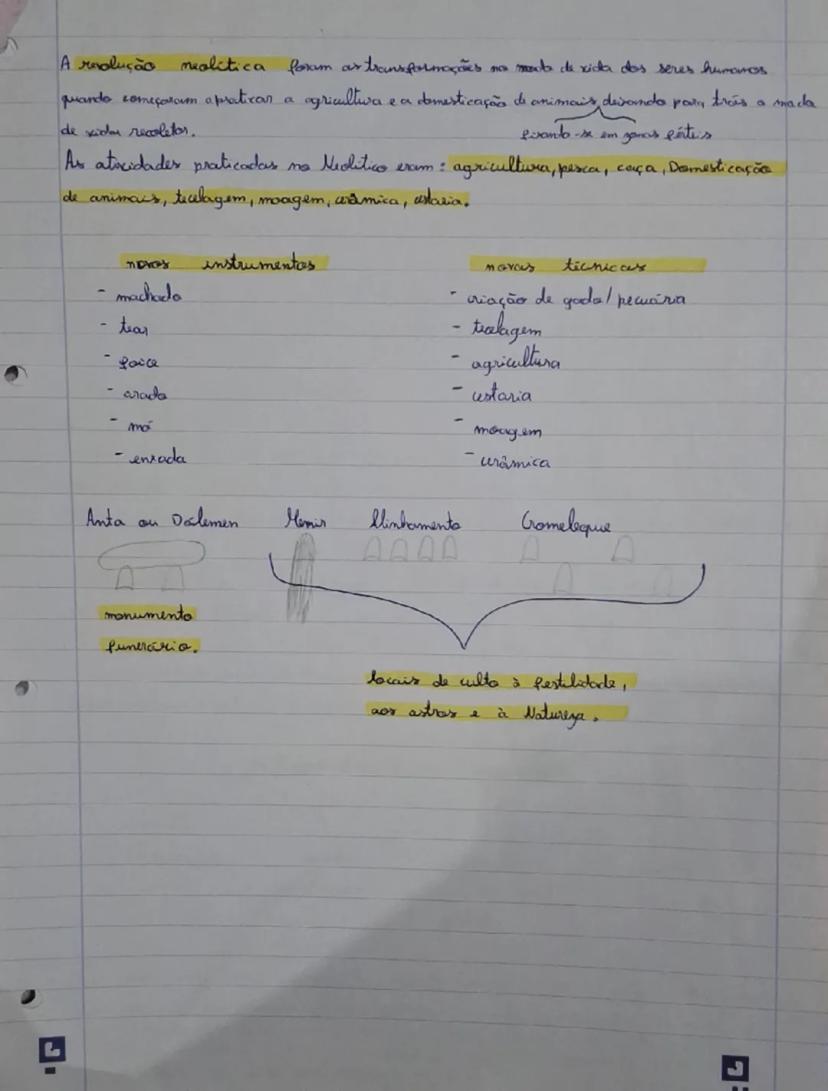 A revolução neolítica foram as transformações no modo de vida dos seres humanos
quando começaram a praticar a agricultura e a domesticação de animais, deixando para trás o modo
de vida recoletor.
fixando-se em zonas férteis
As atividades praticadas no Neolítico eram: agricultura, pesca, caça, Domesticação
de animais, tecelagem, moagem, cerâmica, cestaria.
novos instrumentos
novas técnicas
- machado
- criação de gado/pecuária
- tear
- tecelagem
- foice
- agricultura
- arado
- cestaria
- mó
- moagem
- enxada
- cerâmica
Anta ou Dólemen Menir Alinhamento Cromeleque
monumento
funerário.
locais de culto à fertilidade,
aos astros e à Natureza.